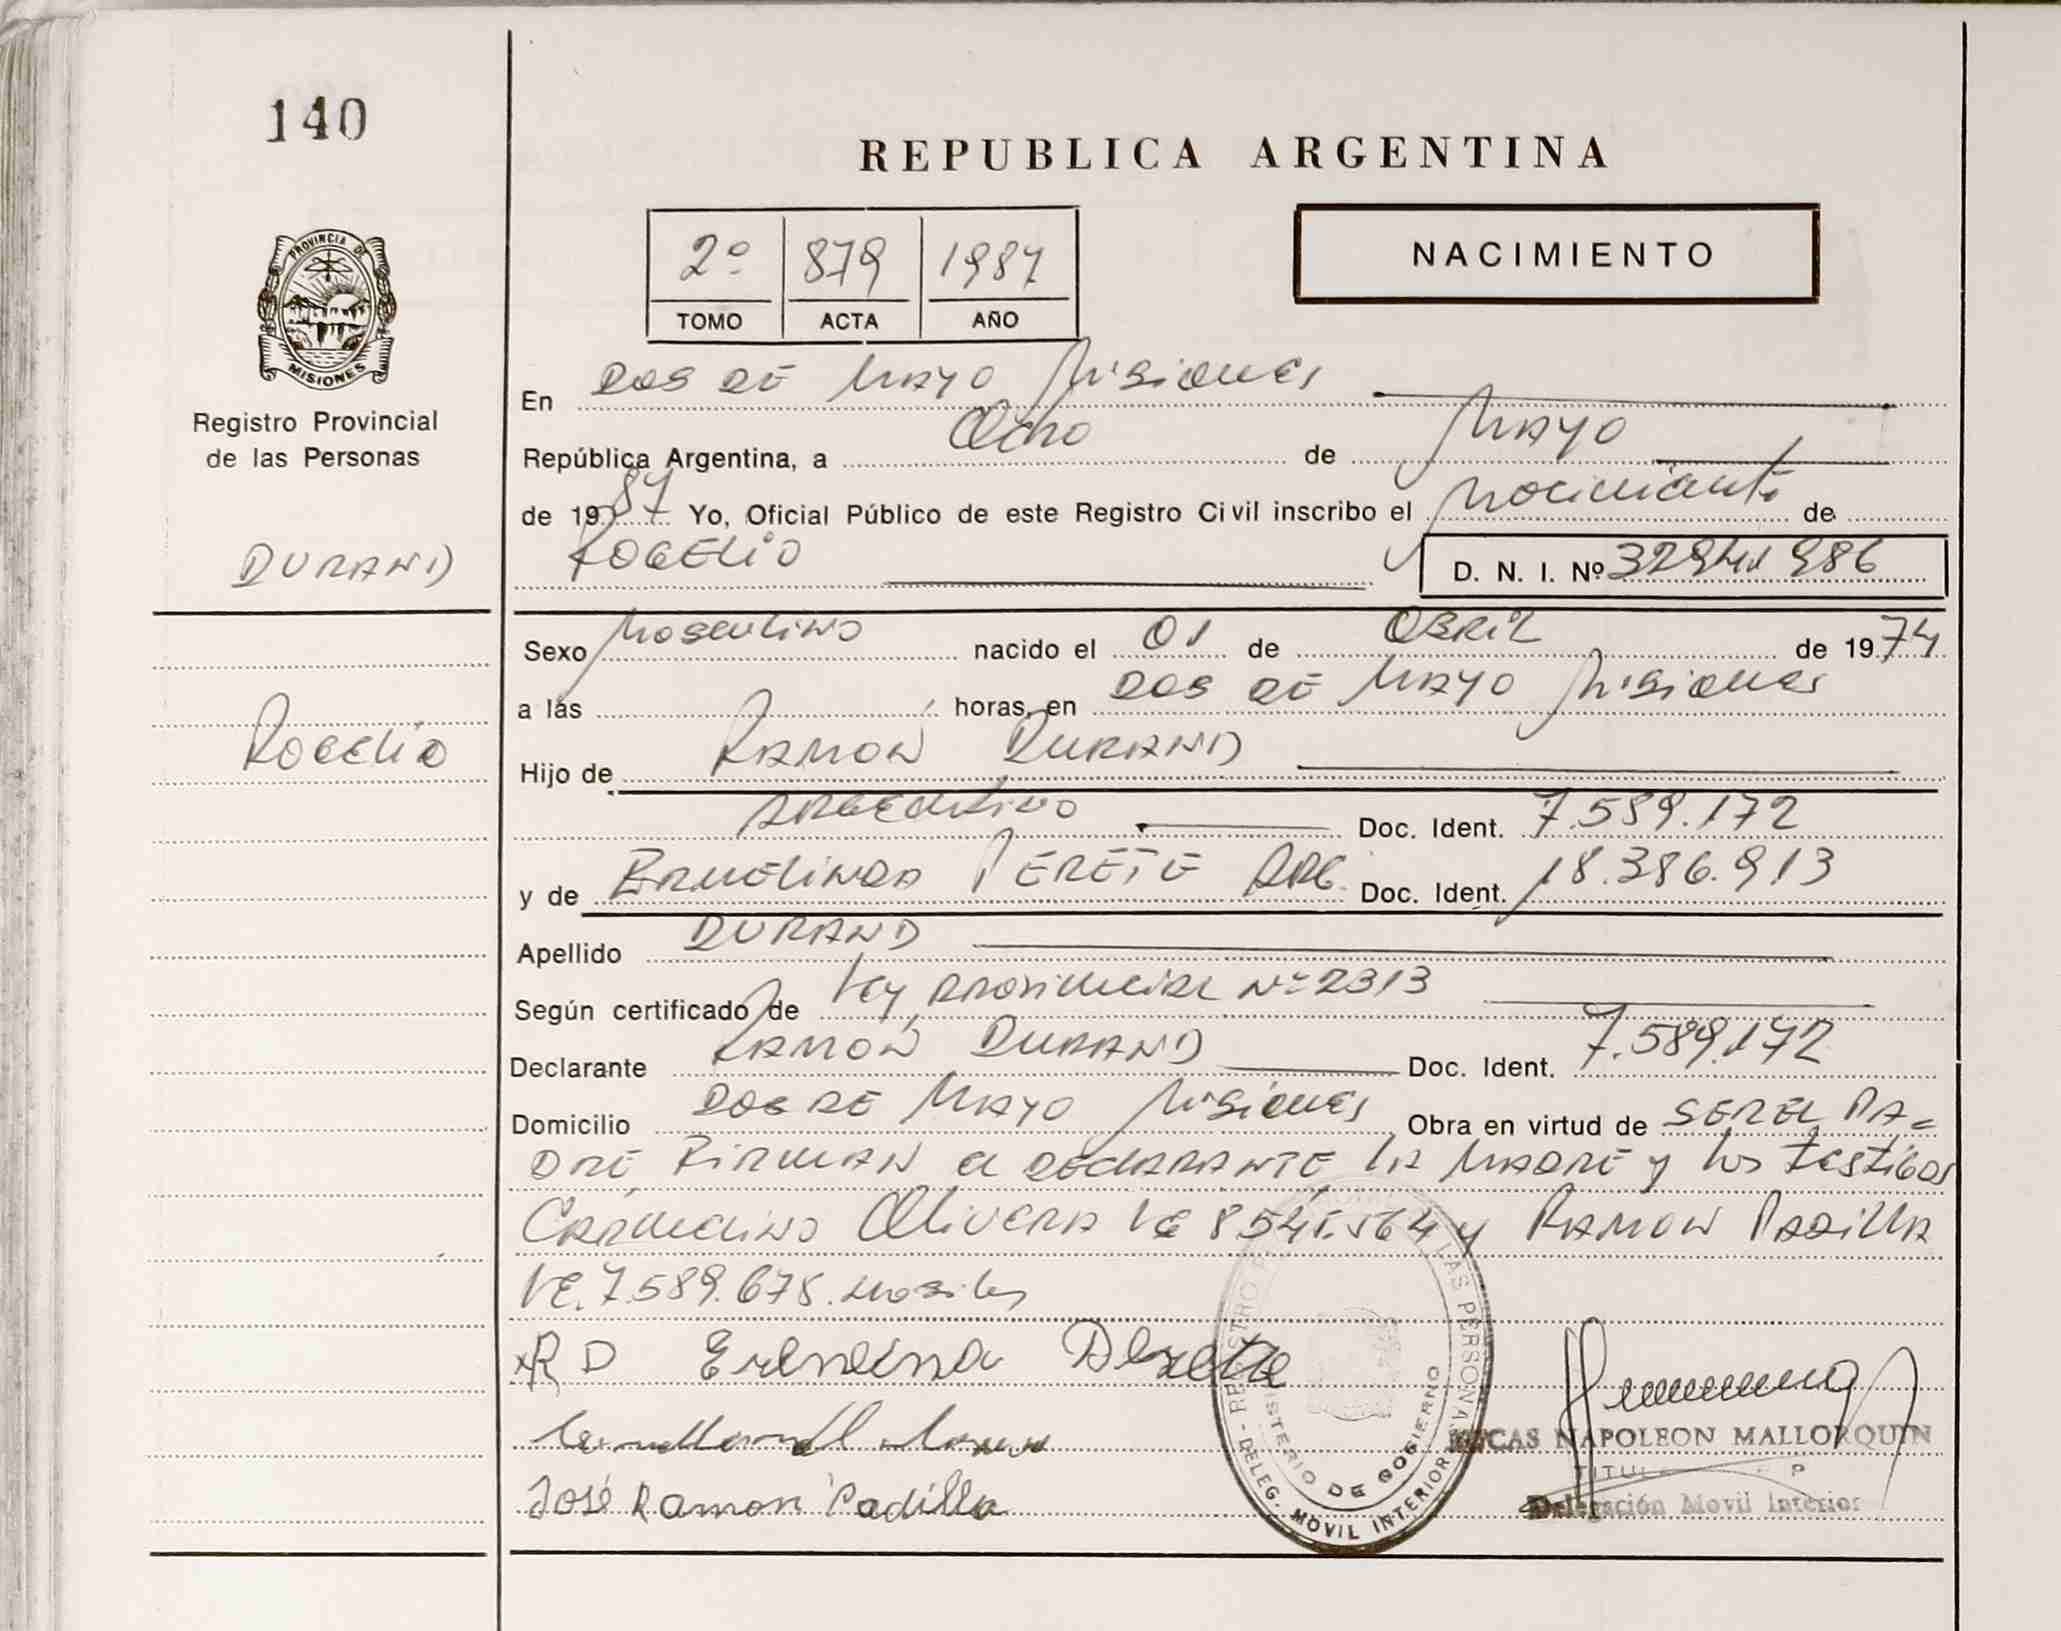 140
REPUBLICA ARGENTINA
2º 879 1987
TOMO ACTA AÑO
NACIMIENTO
PROVINCIA DE
MISIONES
Registro Provincial
de las Personas
DURAND
Rogelio
En DOS DE MAYO Misiones
República Argentina, a Ocho de MAYO
de 1987 Yo, Oficial Público de este Registro Civil inscribo el Nacimiento de
ROGELIO D. N. I. Nº
Sexo Masculino nacido el 01 de ABRIL de 1974
a las horas, en DOS DE MAYO Misiones
Hijo de RAMON DURAND
ARGENTINO Doc. Ident. 7.589.172
y de PERETE ARG. Doc. Ident. 18.386.913
Apellido DURAND
Según certificado de Ley Provincial Nº 2313
Declarante RAMON DURAND Doc. Ident. 7.589.172
Domicilio DOS DE MAYO Misiones Obra en virtud de SER EL PA=
DRE FIRMAN el DECLARANTE LA MADRE y los testigos
Olivera LE y RAMON PADILLA
LE. 7.589.678.
RD
José Ramon Padilla
REGISTRO LAS PERSONAS
MINISTERIO DE GOBIERNO
DELEG. MOVIL INTERIOR
LUCAS NAPOLEON MALLORQUIN
Delegación Movil Interior